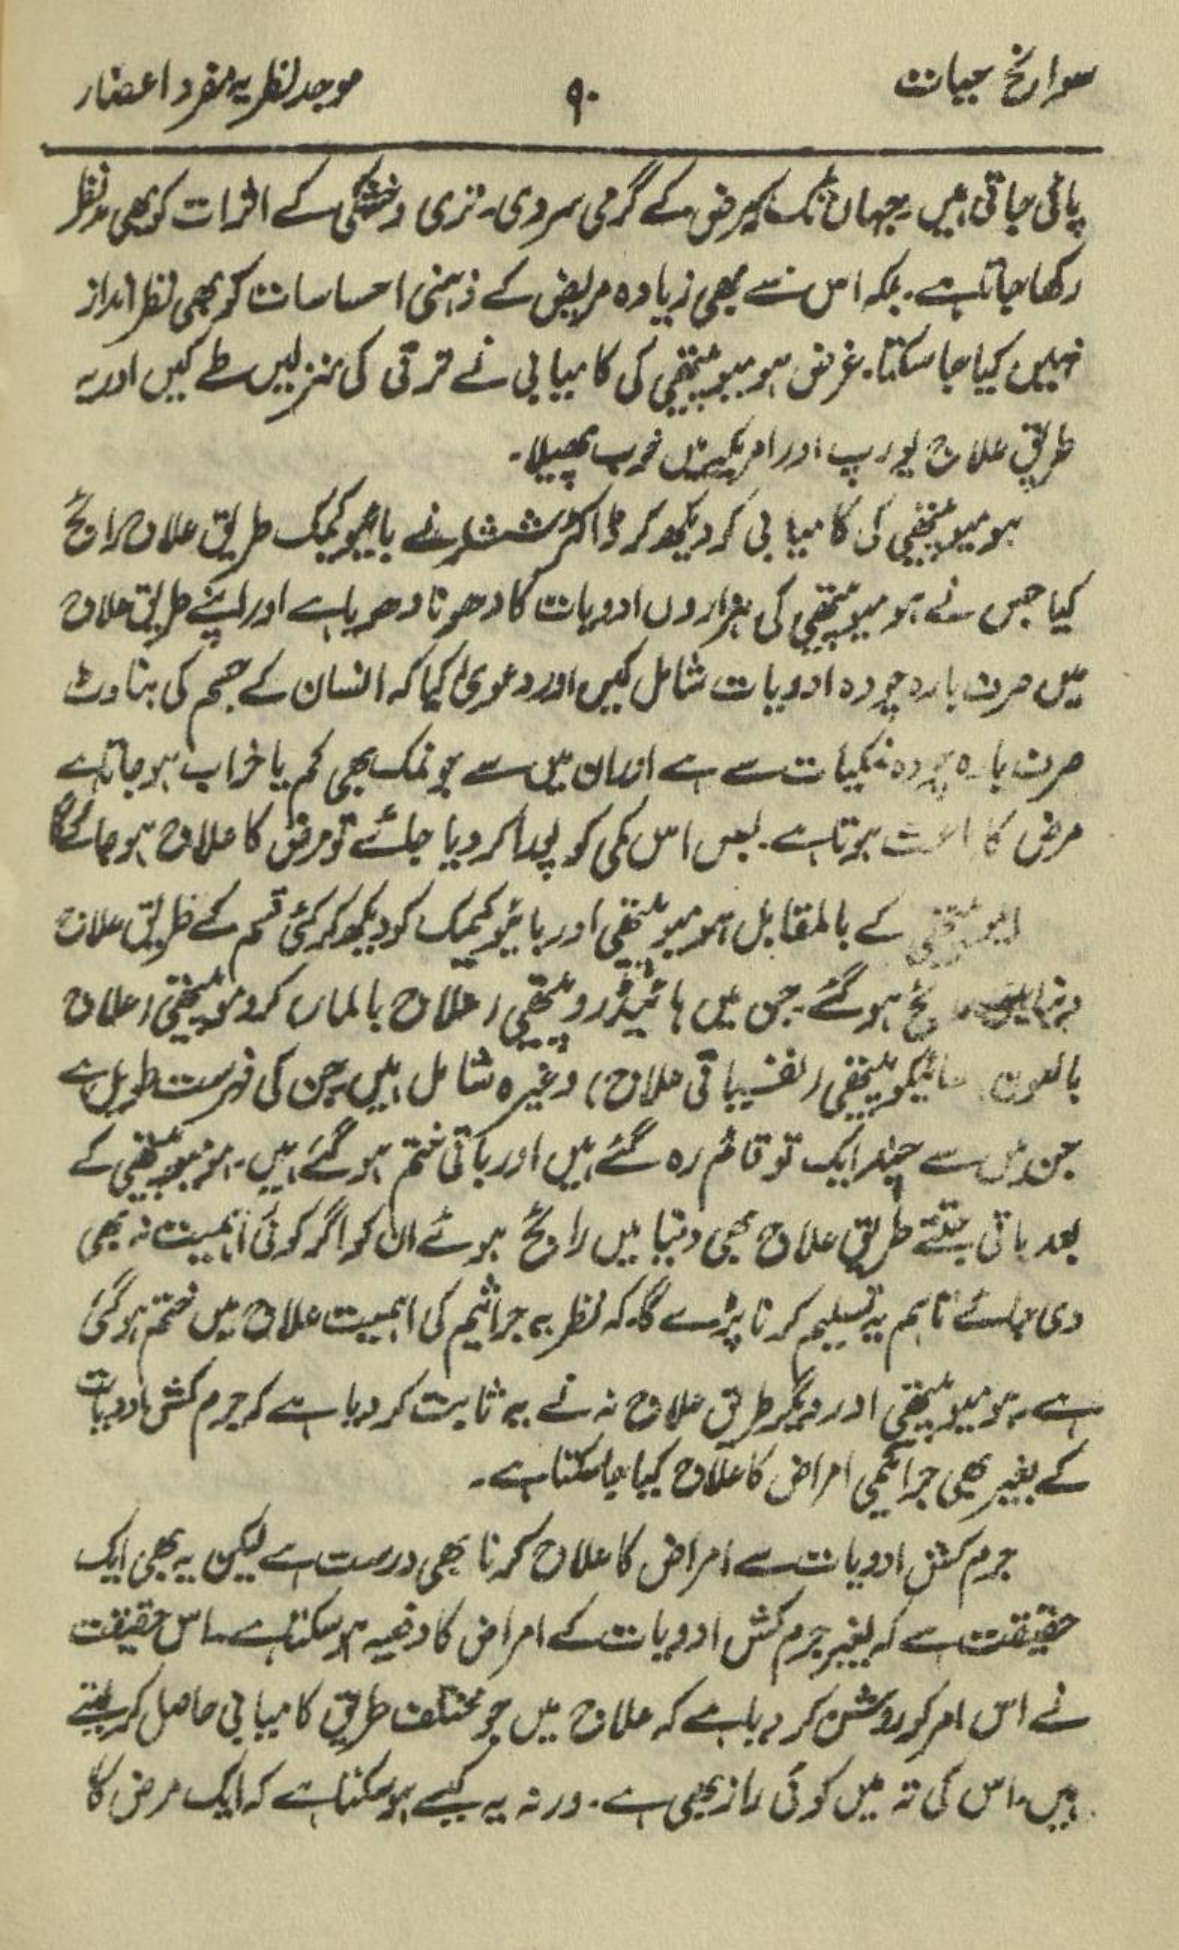 سوانح حیات ۹۰ موجد نظریہ مفرد اعضاء
پائی جاتی ہیں۔ جہاں تک کہ مرض کے گرمی سردی۔ تری وخشکی کے اثرات کو بھی مدنظر
رکھا جاتا ہے۔ بلکہ اس سے بھی زیادہ مریض کے ذہنی احساسات کو بھی نظر انداز
نہیں کیا جا سکتا۔ غرض ہومیوپیتھی کی کامیابی نے ترقی کی منزلیں طے کیں اور یہ
طریق علاج یورپ اور امریکہ میں خوب پھیلا۔
ہومیوپیتھی کی کامیابی کو دیکھ کر ڈاکٹر ششلر نے بائیوکیمک طریق علاج رائج
کیا جس نے ہومیوپیتھی کی ہزاروں ادویات کا دھونا دھو دیا ہے اور اپنے طریق علاج
میں صرف بارہ چودہ ادویات شامل کیں اور دعویٰ کیا کہ انسان کے جسم کی بناوٹ
صرف بارہ چودہ نمکیات سے ہے اور ان میں سے جو نمک بھی کم یا خراب ہو جاتا ہے
مرض کا باعث ہوتا ہے۔ بس اس کمی کو پورا کر دیا جائے تو مرض کا علاج ہو جائے گا
ایلوپیتھی کے بالمقابل ہومیوپیتھی اور بائیوکیمک کو دیکھ کر کئی قسم کے طریق علاج
دنیا میں رائج ہو گئے۔ جن میں ہائیڈروپیتھی (علاج بالماء) کروموپیتھی (علاج
بالعون سائیکوپیتھی (نفسیاتی علاج) وغیرہ شامل ہیں۔ جن کی فہرست طویل ہے
جن میں سے چند ایک تو قائم رہ گئے ہیں اور باقی ختم ہو گئے ہیں۔ ہومیوپیتھی کے
بعد باقی جتنے طریق علاج بھی دنیا میں رائج ہوئے ان کو اگر کوئی اہمیت نہ بھی
دی جائے تاہم یہ تسلیم کرنا پڑے گا۔ کہ نظریہ جراثیم کی اہمیت علاج میں ختم ہو گئی
ہے۔ ہومیوپیتھی اور دیگر طریق علاج نہ نے یہ ثابت کر دیا ہے کہ جرم کش ادویات
کے بغیر بھی جراثیمی امراض کا علاج کیا جا سکتا ہے۔
جرم کش ادویات سے امراض کا علاج کرنا بھی درست ہے لیکن یہ بھی ایک
حقیقت ہے کہ بغیر جرم کش ادویات کے امراض کا دفعیہ ہو سکتا ہے۔ اس حقیقت
نے اس امر کو روشن کر دیا ہے کہ علاج میں جو مختلف طریق کامیابی حاصل کر لیتے
ہیں۔ اس کی تہ میں کوئی راز بھی ہے۔ ورنہ یہ کیسے ہو سکتا ہے کہ ایک مرض کا